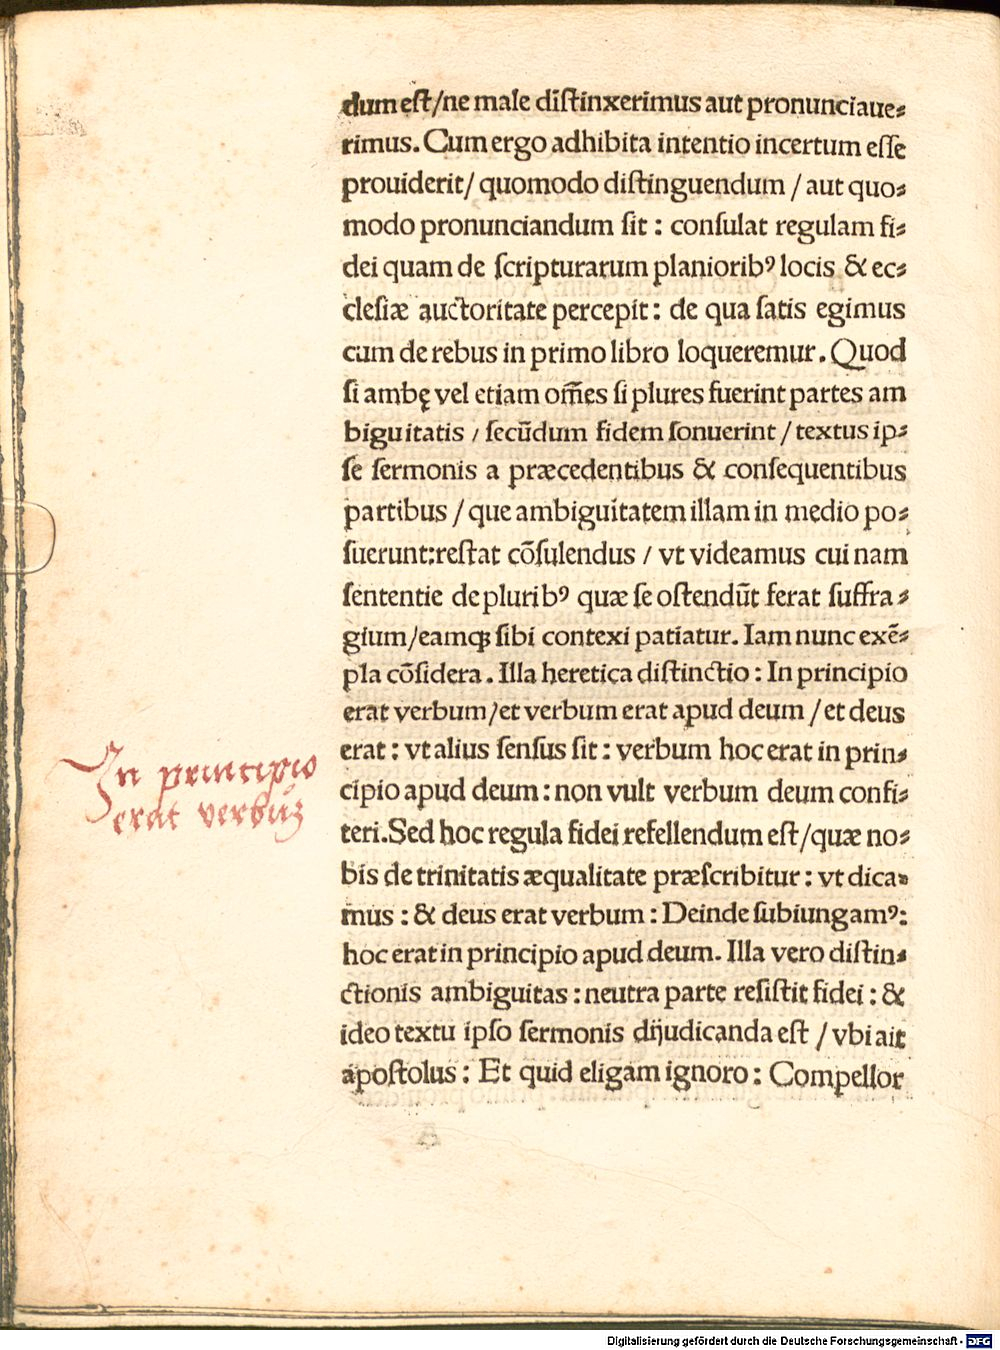 dum eſt/ne male diſtinxerimus aut pronunciaue⸗
rimus. Cum ergo adhibita intentio incertum eſſe
prouiderit/ quomodo diſtinguendum / aut quo⸗
modo pronunciandum ſit : conſulat regulam fi⸗
dei quam de ſcripturarum planioribꝰ locis & ec⸗
cleſiæ auctoritate percepit : de qua ſatis egimus
cum de rebus in primo libro loqueremur. Quod
ſi ambę vel etiam om̅es ſi plures fuerint partes am
biguitatis / ſecūdum fidem ſonuerint / textus ip⸗
ſe ſermonis a præcedentibus & conſequentibus
partibus / que ambiguitatem illam in medio po⸗
ſuerunt:reſtat cōſulendus / vt videamus cui nam
ſententie de pluribꝰ quæ ſe oſtendūt ferat ſuffra⸗
gium/eamqꝫ ſibi contexi patiatur. Iam nunc exē⸗
pla cōſidera. Illa heretica diſtinctio : In principio
erat verbum/et verbum erat apud deum / et deus
erat : vt alius ſenſus ſit : verbum hoc erat in prin⸗
cipio apud deum : non vult verbum deum confi⸗
teri.Sed hoc regula fidei refellendum eſt/quæ no⸗
bis de trinitatis æqualitate præſcribitur : vt dica⸗
mus : & deus erat verbum : Deinde ſubiungamꝰ:
hoc erat in principio apud deum. Illa vero diſtin⸗
ctionis ambiguitas : neutra parte reſiſtit fidei : &
ideo textu ipſo ſermonis dijudicanda eſt / vbi ait
apoſtolus : Et quid eligam ignoro : Compellor
In principio
erat verbūȝ
Digitalisierung gefördert durch die Deutsche Forschungsgemeinschaft - DFG